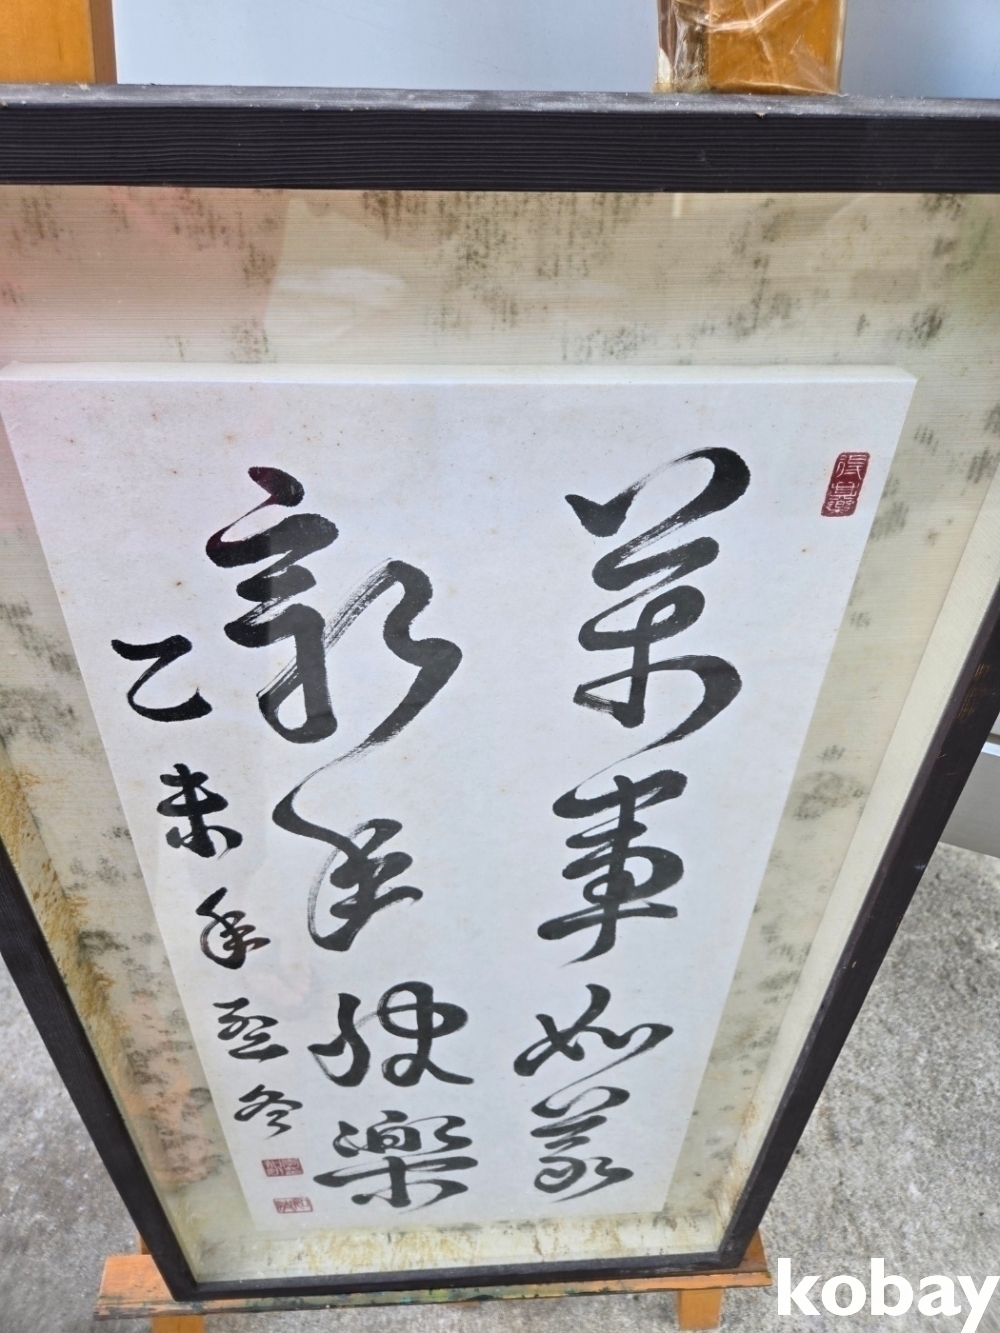 得其樂
萬事如意
新年快樂
乙未年冬
kobay